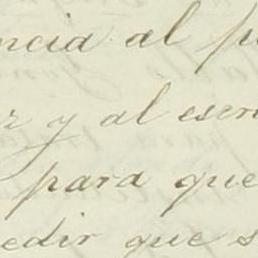 ncia al p
r y al escri
para que
edir que s